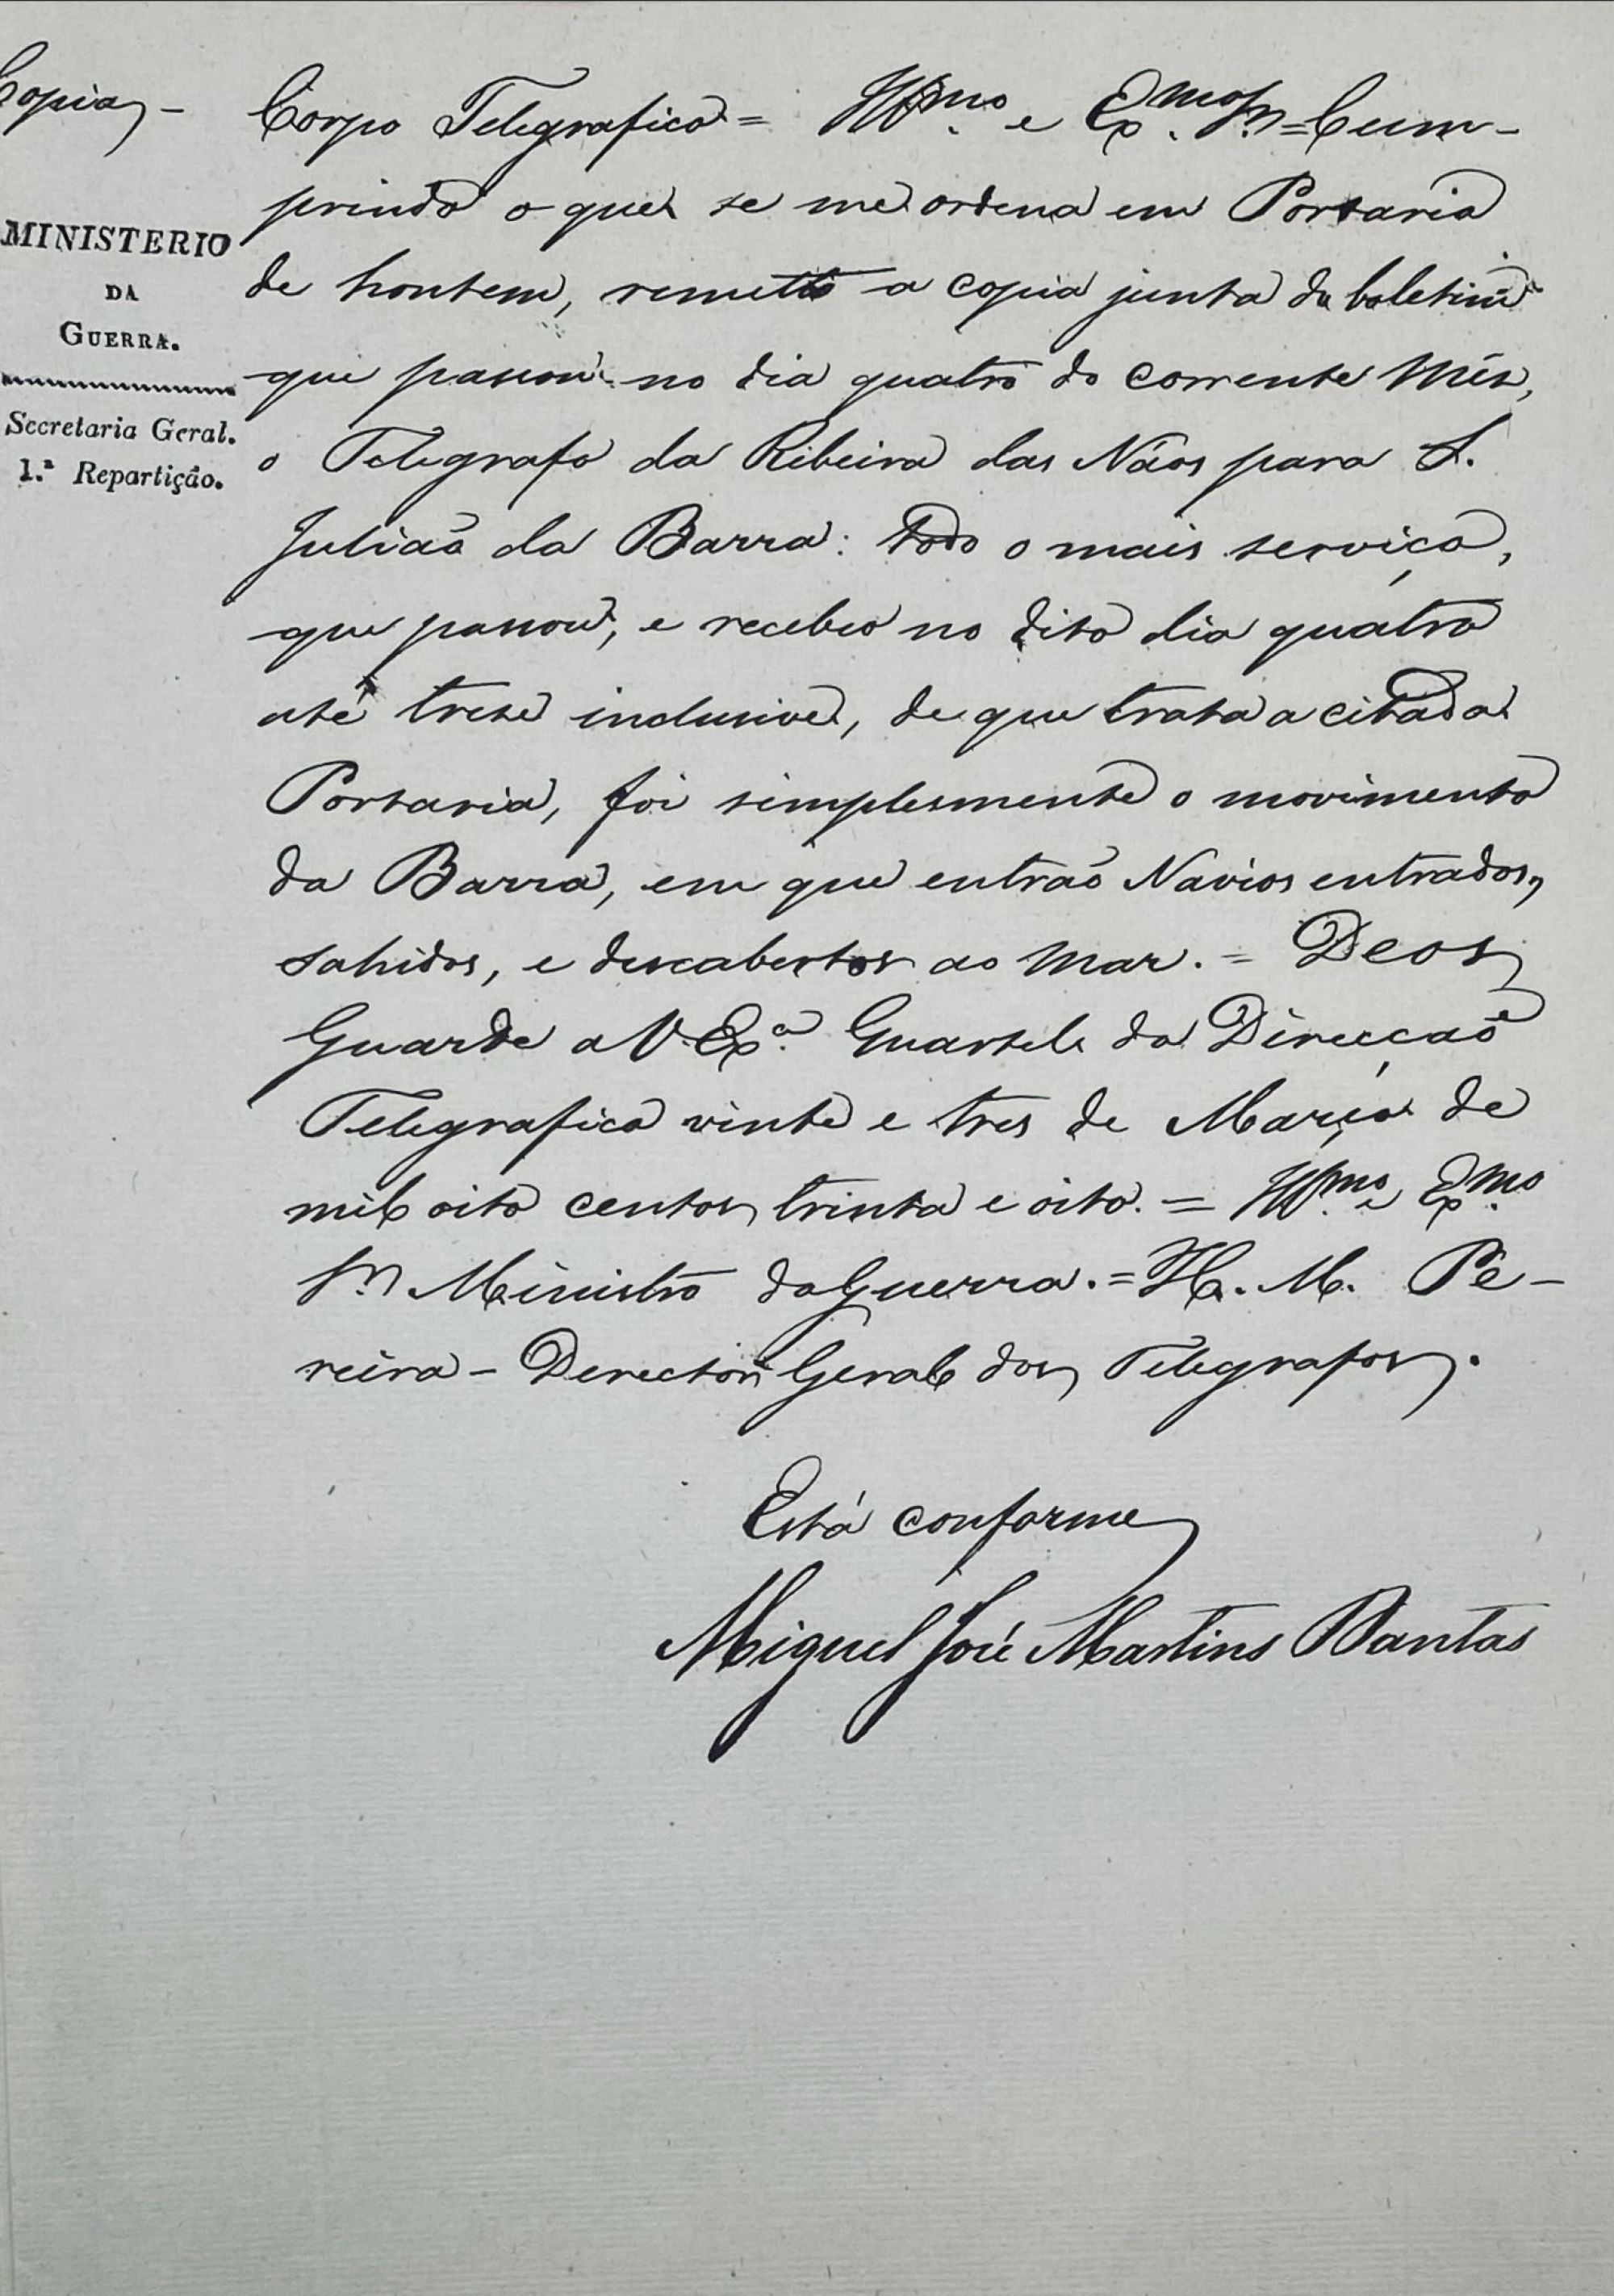 Copia -
MINISTERIO
DA
GUERRA.
Secretaria Geral.
1.ª Repartição.
Corpo Telegrafico = Illmo. e Exmo. Sr. = Cum-
prindo o que se me ordena em Portaria
de hontem, remetto a copia junta do boletim
que passou no dia quatro do corrente Mês,
o Telegrafo da Ribeira das Náos para S.
Julião da Barra: todo o mais serviço,
que passou, e recebeo no dito dia quatro
até trese inclusive, de que trata a citada
Portaria, foi simplesmente o movimento
da Barra, em que entrão Navios entrados,
sahidos, e descabertos ao mar. = Deos
Guarde a V. Exª. Quartel da Direcção
Telegrafica vinte e tres de Março de
mil oito centos trinta e oito. = Illmo. e Exmo.
Sr. Ministro da Guerra. = H. M. Pe-
reira - Derector Geral dos Telegrafos.
Está conforme
Miguel José Martins Dantas